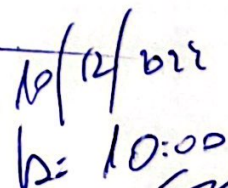 10/12/2022
h: 10:00